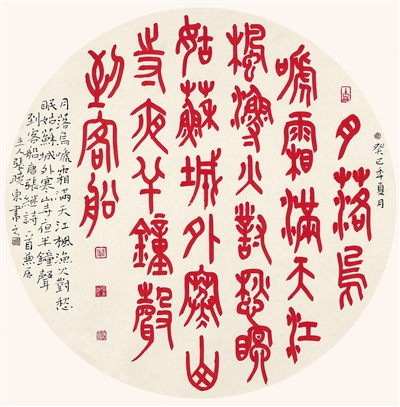 癸巳秊夏月
月落烏
啼霜滿天江
楓漁火對愁眠
姑蘇城外寒山
寺夜半鐘聲
到客船
月落烏啼霜滿天江楓漁火對愁
眠姑蘇城外寒山寺夜半鐘聲
到客船唐張繼詩一首居
主人張曉東書之